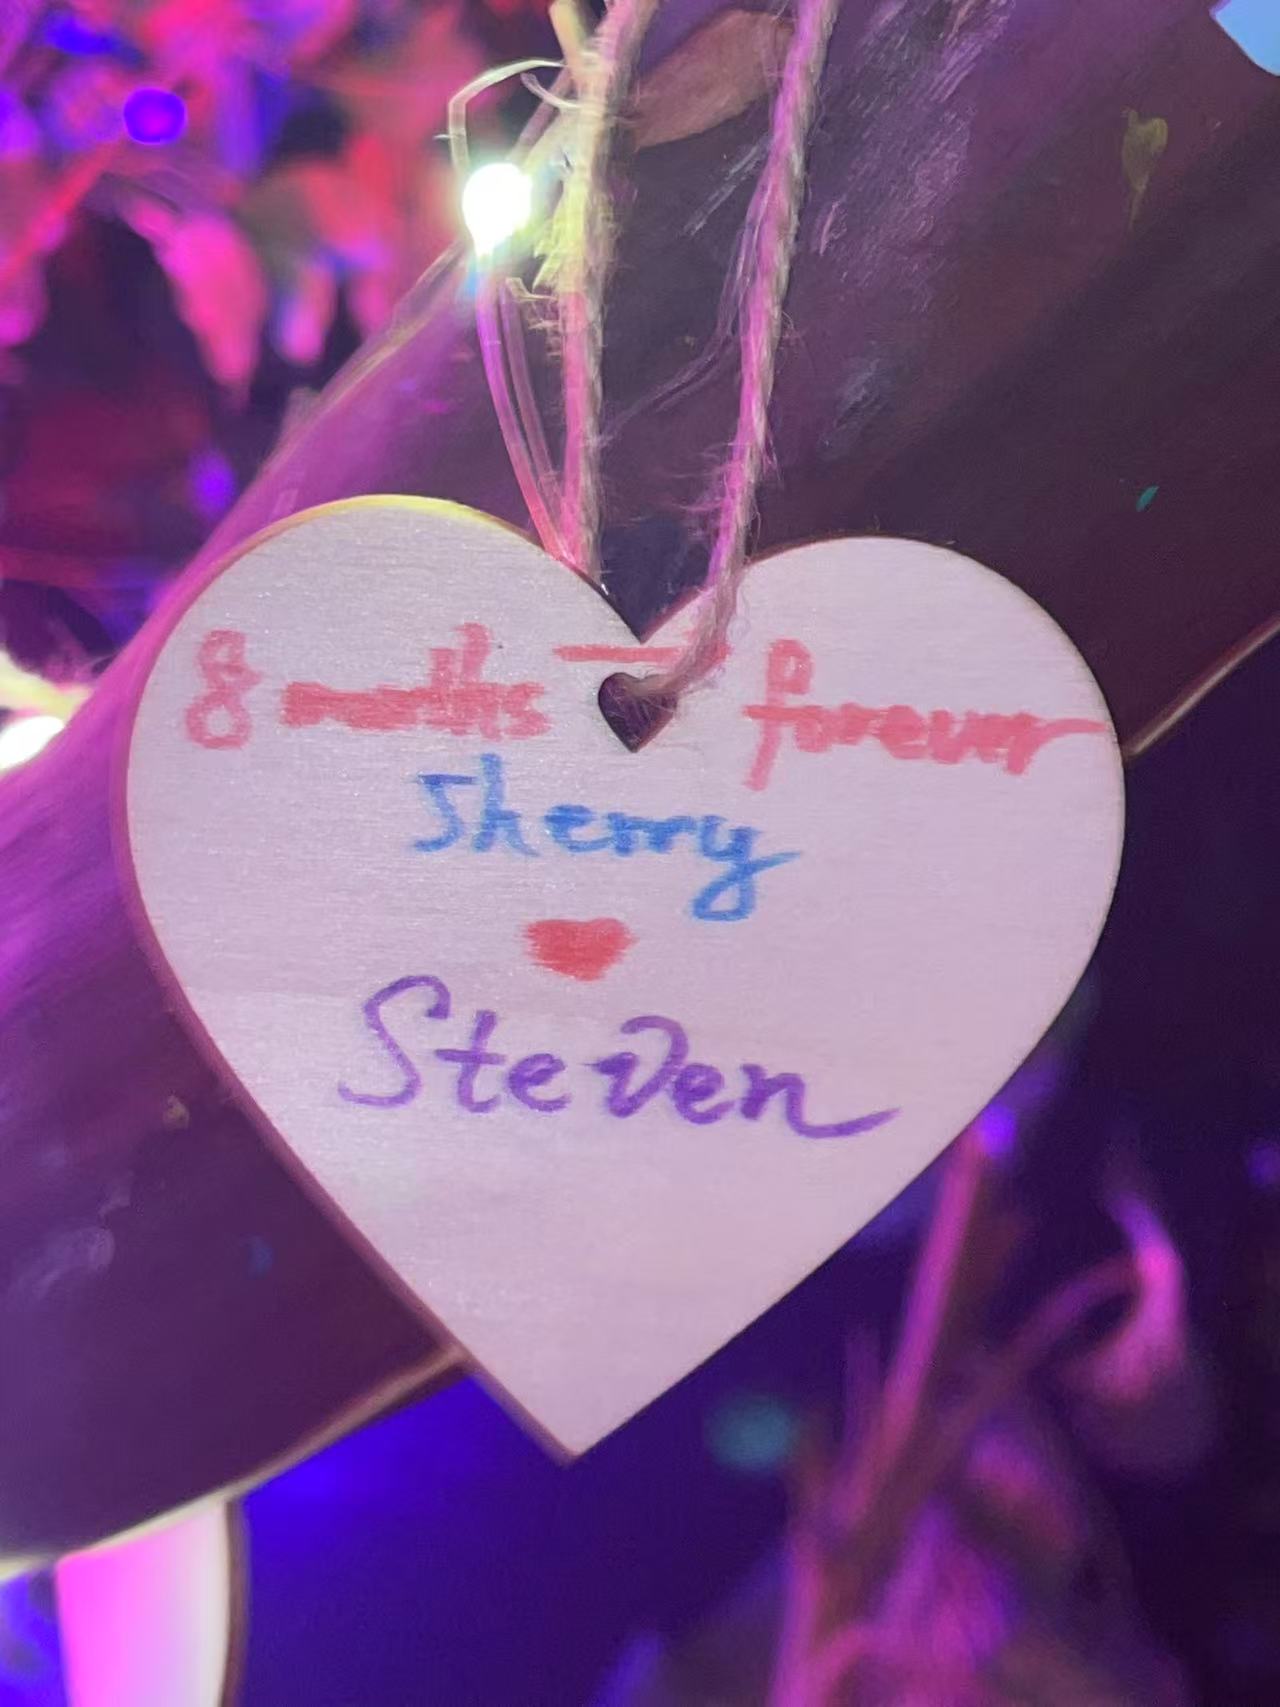 8 months — forever
Sherry
Steven